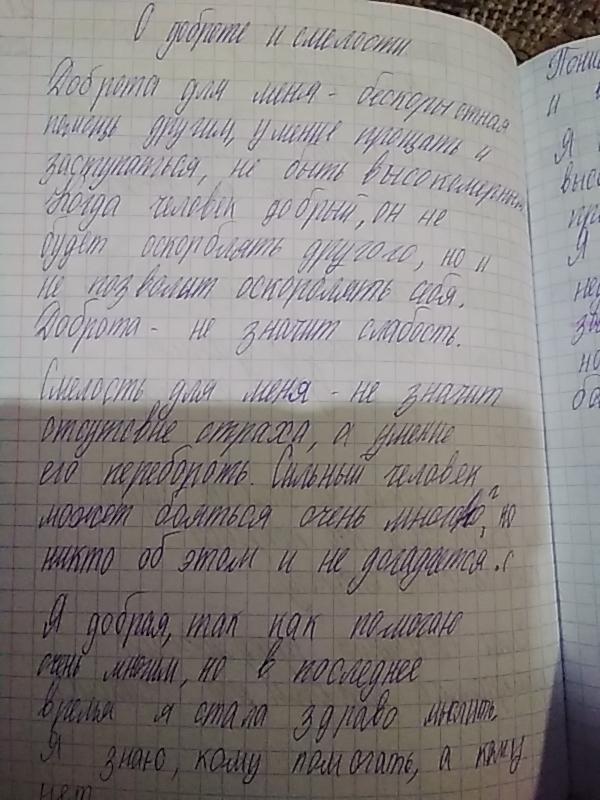 О доброте и смелости.
Доброта для меня - бескорыстная
помощь другим, умение прощать и
заступаться, не быть высокомерным
Когда человек добрый, он не
будет оскорблять другого, но и
не позволит оскорблять себя.
Доброта - не значит слабость.
Смелость для меня - не значит
отсутсвие страха, а умение
его перебороть. Сильный человек
может бояться очень много, но
никто об этом и не догадается.
Я добрая, так как помогаю
очень многим, но в последнее
время я стала здраво мыслить
Я знаю, кому помогать, а кому
нет
и
Я
Я
но